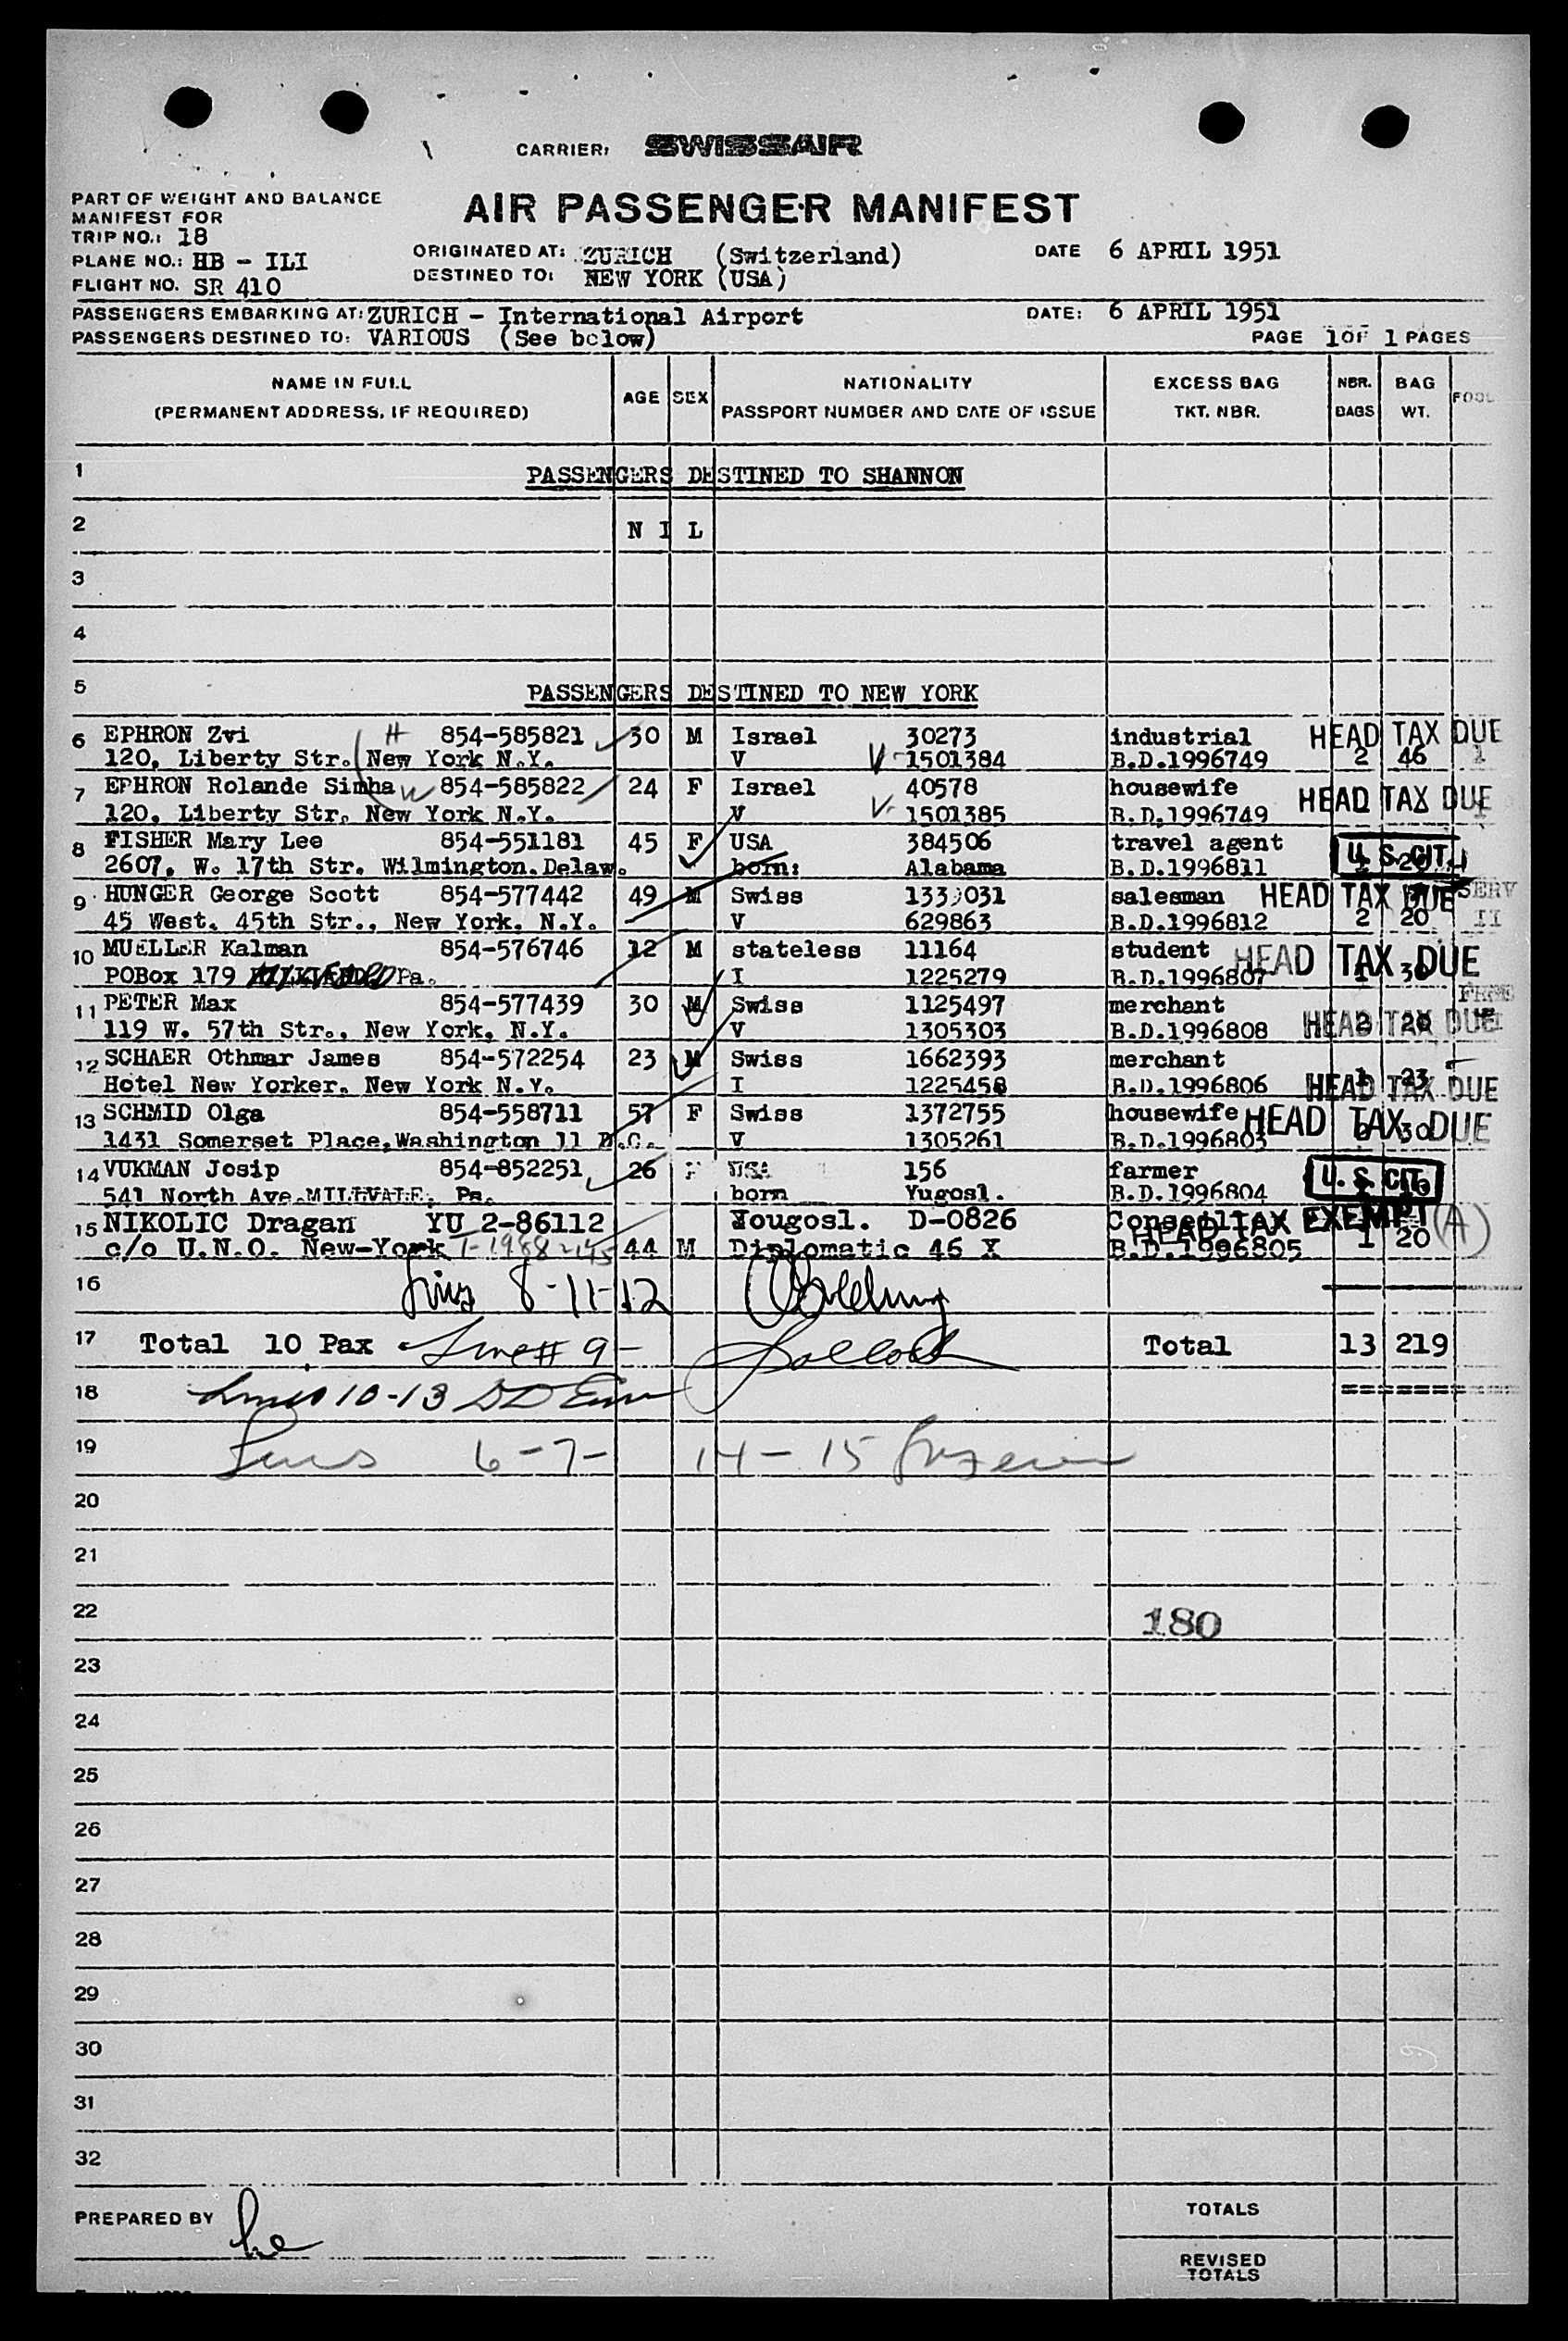 CARRIER: SWISSAIR
PART OF WEIGHT AND BALANCE
MANIFEST FOR
TRIP NO.: 18
PLANE NO.: HB - ILI
FLIGHT NO. SR 410
AIR PASSENGER MANIFEST
ORIGINATED AT: ZURICH (Switzerland)
DESTINED TO: NEW YORK (USA)
DATE 6 APRIL 1951
PASSENGERS EMBARKING AT: ZURICH - International Airport DATE: 6 APRIL 1951
PASSENGERS DESTINED TO: VARIOUS (See below) PAGE 1 OF 1 PAGES
NAME IN FULL
(PERMANENT ADDRESS, IF REQUIRED)
AGE SEX
NATIONALITY
PASSPORT NUMBER AND DATE OF ISSUE
EXCESS BAG
TKT. NBR.
NBR.
BAGS
BAG
WT.
1 PASSENGERS DESTINED TO SHANNON
2 N I L
3
4
5 PASSENGERS DESTINED TO NEW YORK
6 EPHRON Zvi H 854-585821 30 M Israel 30273 industrial HEAD TAX DUE
120, Liberty Str. New York N.Y. V V 1501384 B.D.1996749 2 46 1
7 EPHRON Rolande Simha W 854-585822 24 F Israel 40578 housewife HEAD TAX DUE
120, Liberty Str. New York N.Y. V V 1501385 B.D.1996749
8 FISHER Mary Lee 854-551181 45 F USA 384506 travel agent U.S. CIT.
2607, W. 17th Str. Wilmington.Delaw. born: Alabama B.D.1996811 20
9 HUNGER George Scott 854-577442 49 M Swiss salesman HEAD TAX DUE SERV
45 West. 45th Str., New York, N.Y. V 629863 B.D.1996812 2 20 II
10 MUELLER Kalman 854-576746 12 M stateless 11164 student HEAD TAX DUE
POBox 179 Pa. I 1225279 B.D.1996807 1 30
11 PETER Max 854-577439 30 M Swiss 1125497 merchant
119 W. 57th Str., New York, N.Y. V 1305303 B.D.1996808 HEAD TAX DUE 20
12 SCHAER Othmar James 854-572254 23 M Swiss 1662393 merchant
Hotel New Yorker, New York N.Y. I 1225458 B.D.1996806 1 23 HEAD TAX DUE
13 SCHMID Olga 854-558711 57 F Swiss 1372755 housewife HEAD TAX DUE
1431 Somerset Place,Washington 11 D.C. V 1305261 B.D.1996803 30
14 VUKMAN Josip 854-852251 26 USA 156 farmer U.S. CIT.
541 North Ave.MILLVALE, Pa. born Yugosl. B.D.1996804
15 NIKOLIC Dragan YU 2-86112 Yougosl. D-0826 HEAD TAX EXEMPT (A)
c/o U.N.O. New-York 44 M Diplomatic 46 X B.D.1996805 1 20
16 8-11-12
17 Total 10 Pax Line # 9- Total 13 219
18 Lines 10-13
19 Lines 6-7- 14-15
20
21
22 180
23
24
25
26
27
28
29
30
31
32
PREPARED BY
TOTALS
REVISED
TOTALS